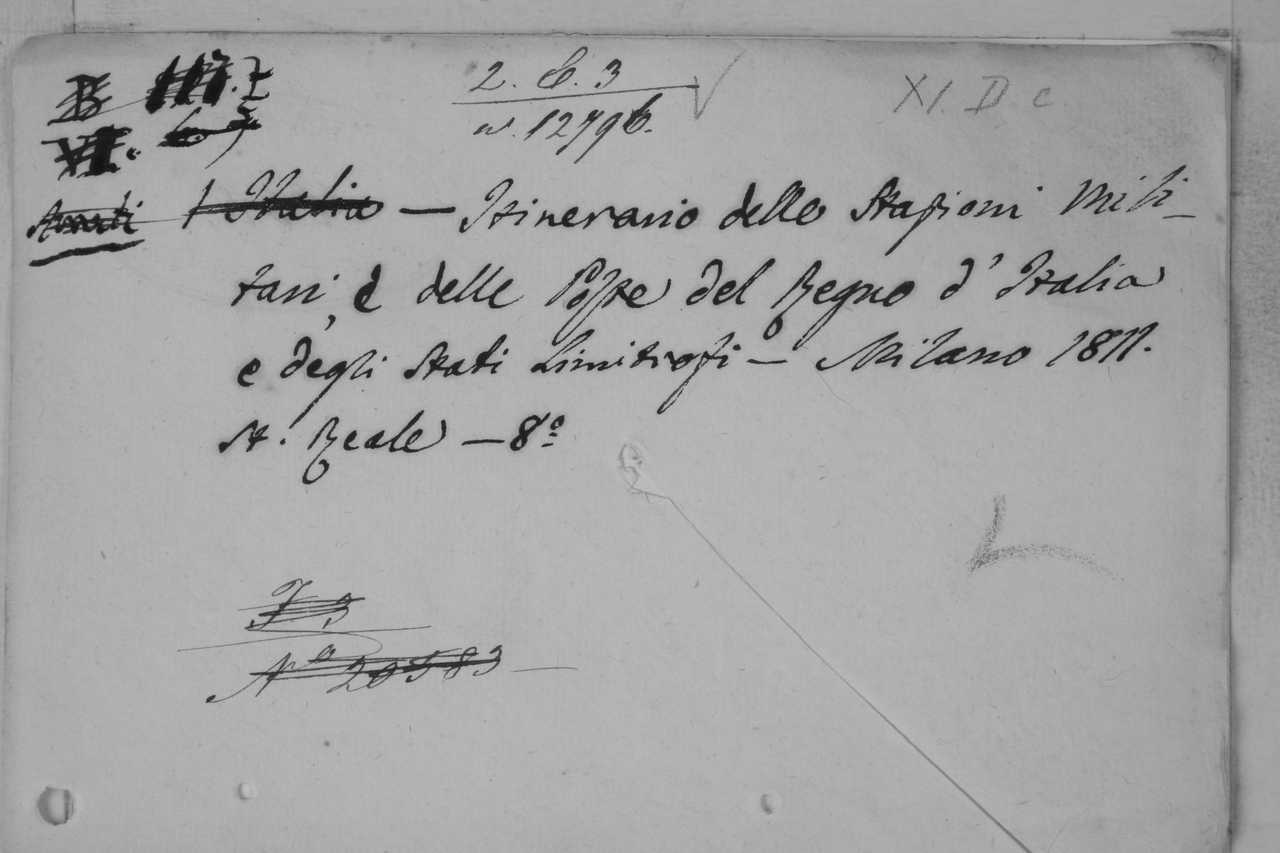 2. C. 3
n. 12796.
XI. D c
Italia — Itinerario delle Stazioni Mili-
tari, e delle Poste del Regno d'Italia
e degli Stati Limitrofi — Milano 1811.
St. Reale — 8º
F 3
Nº 20583